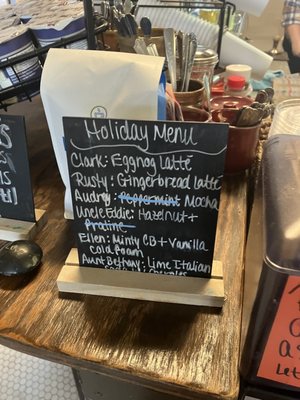 Holiday Menu
Clark: Eggnog Latté
Rusty: Gingerbread latté
Audrey: Peppermint Mocha
Uncle Eddie: Hazelnut +
Praline
Ellen: Minty CB + Vanilla
cold foam
Aunt Bethany: Lime Italian